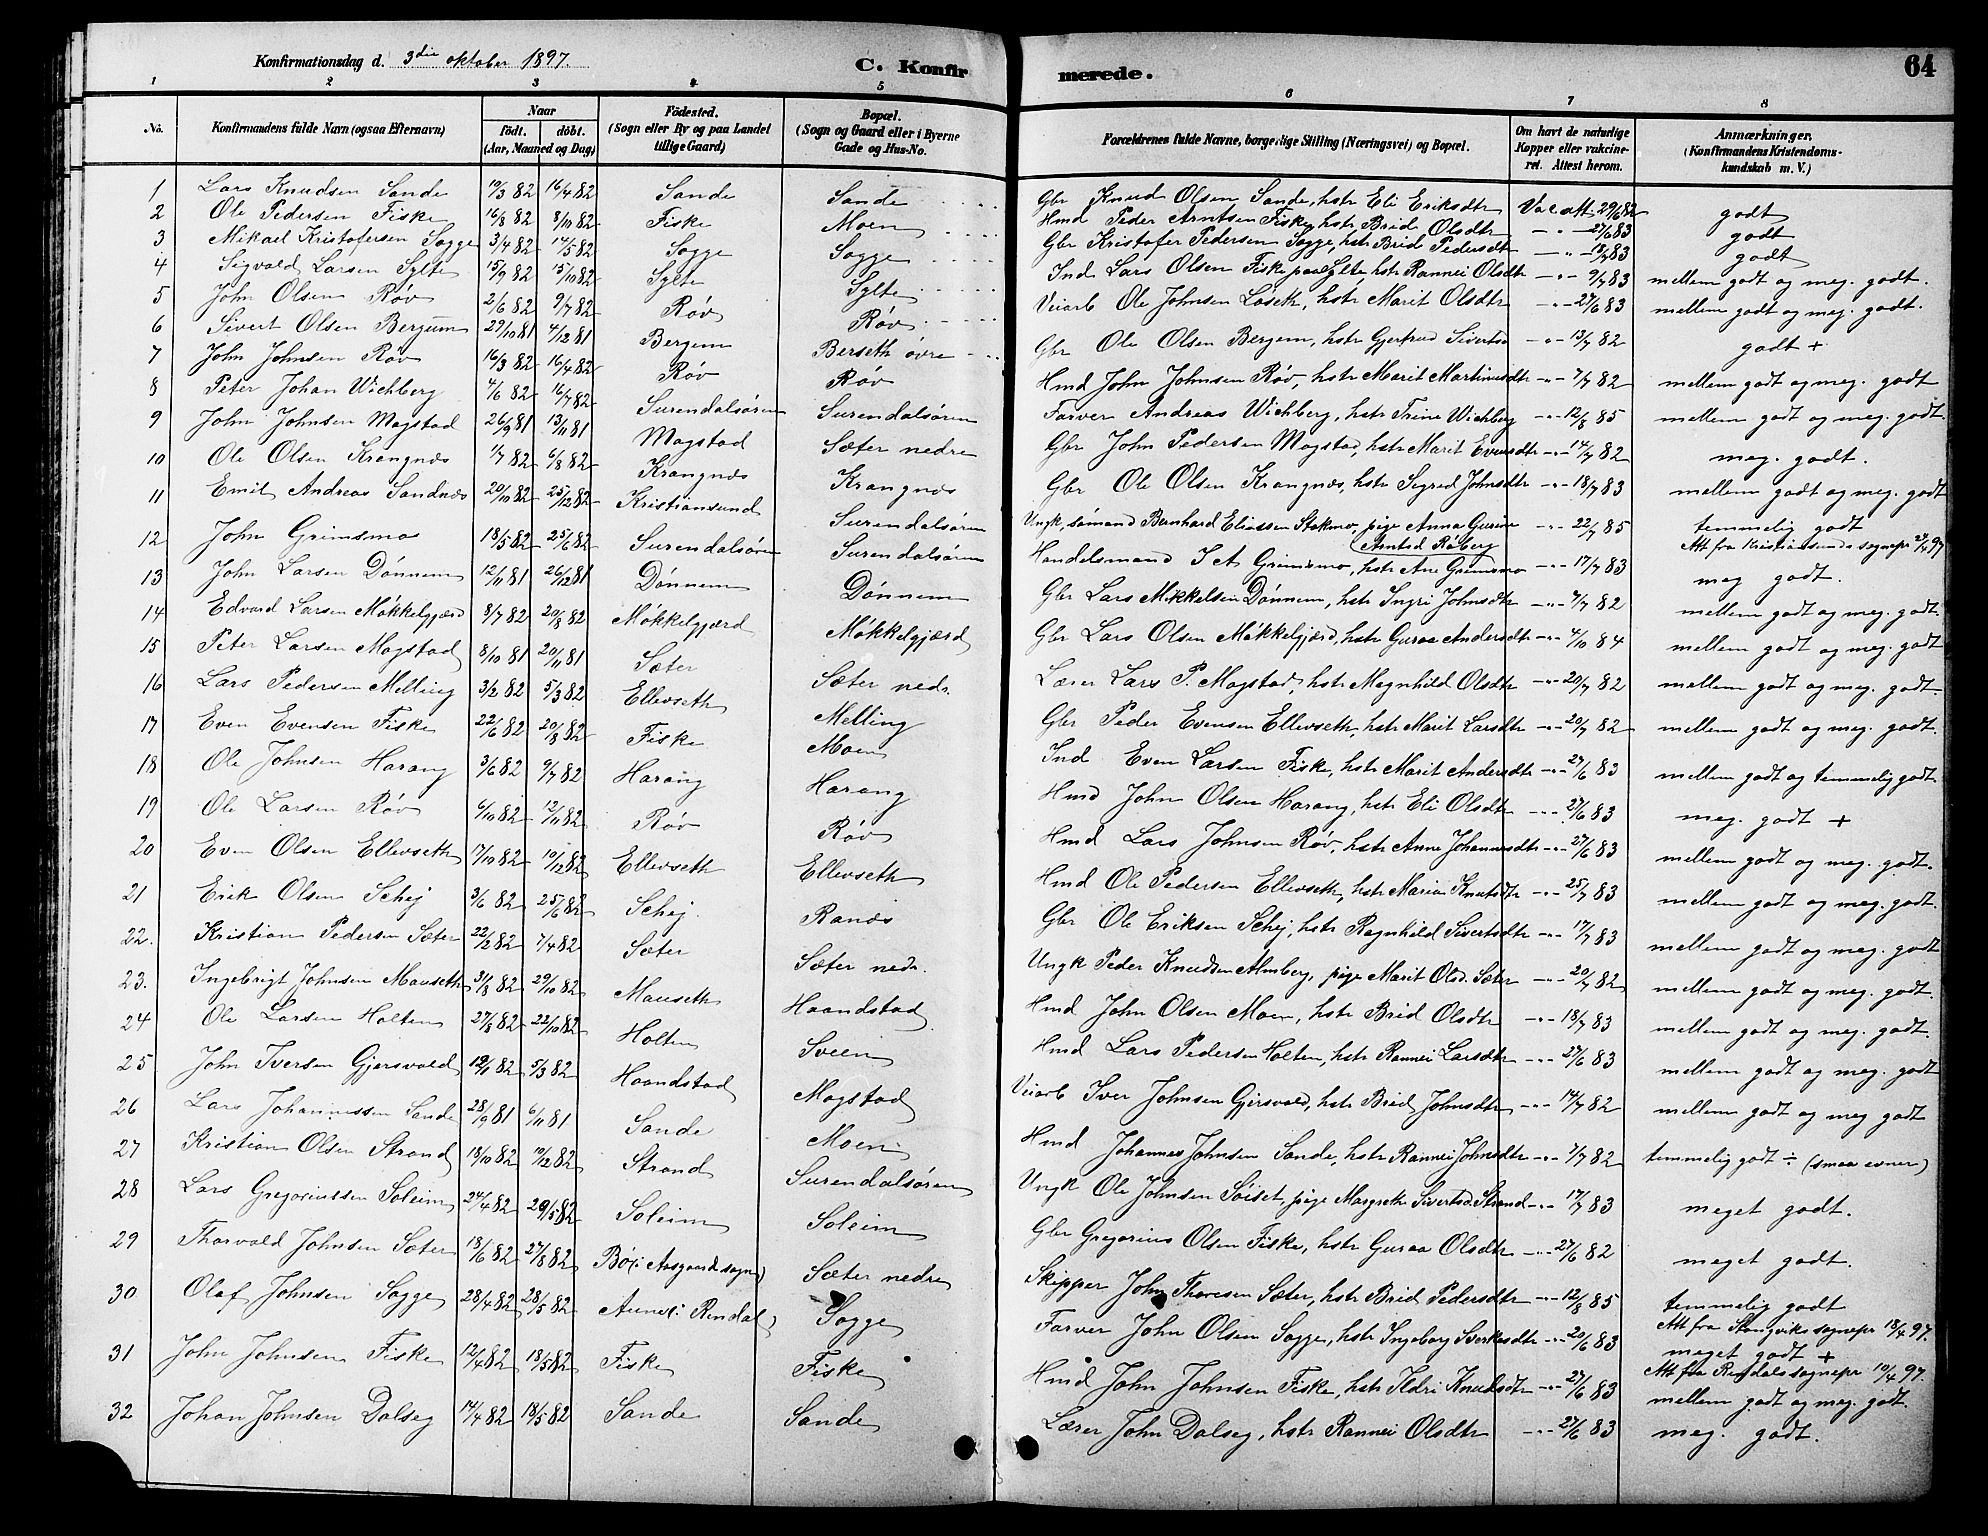 Konfirmationsdag d. 3die oktober 1897.
C. Konfirmerede.
64
1 2 3 4 5 6 7 8
No.
Konfirmandens fulde Navn (ogsaa Efternavn)
Naar
födt. döbt.
(Aar, Maaned og Dag)
Födested.
(Sogn eller By og paa Landet tillige Gaard)
Bopæl.
(Sogn og Gaard eller i Byerne Gade og Hus-No.
Forældrenes fulde Navne, borgerlige Stilling (Næringsvei) og Bopæl.
Om havt de naturlige Kopper eller vakcineret. Attest herom.
Anmærkninger.
(Konfirmandens Kristendomskundskab m. V.)
1 Lars Knudsen Sande 19/3 82 16/4 82 Sande Sande Gbr Knud Olsen Sande, hstr Eli Eriksdtr Vac att. 29/6 82 godt
2 Ole Pedersen Fiske 16/8 82 8/10 82 Fiske Moen Hmd Peder Arntsen Fiske, hstr Brid Olsdtr -"- 27/6 83 godt
3 Mikael Kristofersen Sogge 3/4 82 17/5 82 Sogge Sogge Gbr Kristofer Pedersen Sogge, hstr Brid Pedersdtr -"- 18/7 83 godt
4 Sigvald Larsen Sylte 15/9 82 15/10 82 Sylte Sylte Ind Lars Olsen Fiske paa Sylte, hstr Rannei Olsdtr -"- 9/7 83 mellem godt og meg. godt.
5 John Olsen Røv 2/6 82 9/7 82 Røv Røv Veiarb Ole Johnsen Løseth, hstr Marit Olsdtr -"- 27/6 83 mellem godt og meg. godt.
6 Sivert Olsen Bergum 29/10 81 4/12 81 Bergem Berseth øvre Gbr Ole Olsen Bergem, hstr Gjertrud Sivertsd -"- 13/7 82 godt +
7 John Johnsen Røv 16/3 82 16/4 82 Røv Røv Hmd John Johnsen Røv, hstr Marit Martinusdtr -"- 7/7 82 mellem godt og meg. godt
8 Peter Johan Wichberg 4/6 82 16/7 82 Surendalsøren Surendalsøren Farver Andreas Wichberg, hstr Trine Wichberg -"- 12/8 85 mellem godt og meg. godt.
9 John Johnsen Mogstad 26/9 81 13/11 81 Mogstad Sæter nedre Gbr John Pedersen Mogstad, hstr Marit Evensdtr -"- 14/7 82 meg. godt.
10 Ole Olsen Krangnæs 1/7 82 6/8 82 Krangnæs Krangnæs Gbr Ole Olsen Krangnæs, hstr Sigrid Johnsdtr -"- 18/7 83 mellem godt og meg. godt
11 Emil Andreas Sandnæs 20/10 82 25/12 82 Kristiansund Surendalsøren Ungk, sømand Bernhard Eliassen Stokmo, pige Anna Gurine Arntsd Røberg -"- 22/7 85 temmelig godt
Att fra Kristiansunds sognepr 27/4 97
12 John Grimsmo 18/5 82 25/6 82 Surendalsøren Surendalsøren Handelsmand J A Grimsmo, hstr Ane Grimsmo -"- 17/7 83 meg godt.
13 John Larsen Dønnem 12/11 81 26/12 81 Dønnem Dønnem Gbr Lars Mikkelsen Dønnem, hstr Ingri Johnsdtr -"- 7/7 82 mellem godt og meg. godt.
14 Edvard Larsen Møkkelgjærd 8/7 82 20/8 82 Møkkelgjærd Møkkelgjærd Gbr Lars Olsen Møkkelgjærd, hstr Guraa Andersdtr -"- 4/10 84 mellem godt og meg. godt
15 Peter Larsen Mogstad 8/10 81 20/11 81 Sæter Sæter nedr. Lærer Lars P. Mogstad, hstr Magnhild Olsdtr -"- 20/7 82 mellem godt og meg. godt.
16 Lars Pedersen Melling 3/2 82 5/3 82 Ellevseth Melling Gbr Peder Evensen Ellevseth, hstr Marit Larsdtr -"- 20/7 82 mellem godt og meg. godt.
17 Even Evensen Fiske 22/6 82 20/8 82 Fiske Moen Ind Even Larsen Fiske, hstr Marit Andersdtr -"- 27/6 83 mellem godt og temmelig godt.
18 Ole Johnsen Harang 3/6 82 9/7 82 Harang Harang Hmd John Olsen Harang, hstr Eli Olsdtr -"- 27/6 83 meg. godt +
19 Ole Larsen Røv 6/10 82 12/11 82 Røv Røv Hmd Lars Johnsen Røv, hstr Anne Johannesdtr -"- 27/6 83 mellem godt og meg. godt.
20 Even Olsen Ellevseth 17/10 82 10/12 82 Ellevseth Ellevseth Hmd Ole Pedersen Ellevseth, hstr Maria Knutsdtr -"- 25/7 83 mellem godt og meg. godt.
21 Erik Olsen Schej 3/6 82 25/6 82 Schej Ranæs Gbr Ole Eriksen Schej, hstr Ragnhild Sivertsdtr -"- 17/7 83 mellem godt og meg. godt.
22. Kristian Pedersen Sæter 22/2 82 7/4 82 Sæter Sæter nedr. Ungk Peder Knudsen Almberg, pige Marit Olsd. Sæter -"- 20/7 82 mellem godt og meg. godt.
23. Ingebrigt Johnsen Mauseth 31/8 82 29/10 82 Mauseth Haandstad Hmd John Olsen Moen, hstr Brid Olsdtr -"- 18/7 83 mellem godt og meg. godt.
24 Ole Larsen Holten 27/8 82 22/10 82 Holten Sveen Hmd Lars Pedersen Holten, hstr Rannei Larsdtr -"- 27/6 83 mellem godt og meg. godt.
25 John Iversen Gjersvold 19/1 82 5/3 82 Haandstad Mogstad Veiarb Iver Johnsen Gjersvold, hstr Brid Johnsdtr -"- 14/7 82 mellem godt og meg godt
26 Lars Johannessen Sande 28/9 81 6/11 81 Sande Moen Hmd Johannes Johnsen Sande, hstr Rannei Johnsdtr -"- 7/7 82 temmelig godt ÷ (smaa evner)
27 Kristian Olsen Strand 18/10 82 10/12 82 Strand Surendalsøren Ungk Ole Johnsen Søiset, pige Margrethe Sivertsd. Strand -"- 17/7 83 meget godt.
28 Lars Gregoriussen Soleim 24/4 82 29/5 82 Soleim Soleim Gbr Gregorius Olsen Fiske, hstr Guraa Olsdtr -"- 27/6 82 meget godt.
29 Thorvald Johnsen Sæter 18/6 82 27/8 82 Bø (i Aasgaards sogn) Sæter nedre Skipper John Thoresen Sæter, hstr Brid Pedersdtr -"- 12/8 85 temmelig godt
Att fra Stangviks sognepr 18/4 97.
30 Olaf Johnsen Sogge 28/4 82 28/5 82 Aune (i Rindal) Sogge Farver John Olsen Sogge, hstr Ingeborg Sverkesdtr -"- 20/6 83 meget godt +
Att fra Rindals sognepr 10/4 97.
31 John Johnsen Fiske 12/4 82 18/5 82 Fiske Fiske Hmd John Johnsen Fiske, hstr Ildri Knudsdtr -"- 27/6 83 mellem godt og meg. godt.
32 Johan Johnsen Dalseg 17/4 82 18/5 82 Sande Sande Lærer John Dalseg, hstr Rannei Olsdtr -"- 27/6 83 meg. godt.